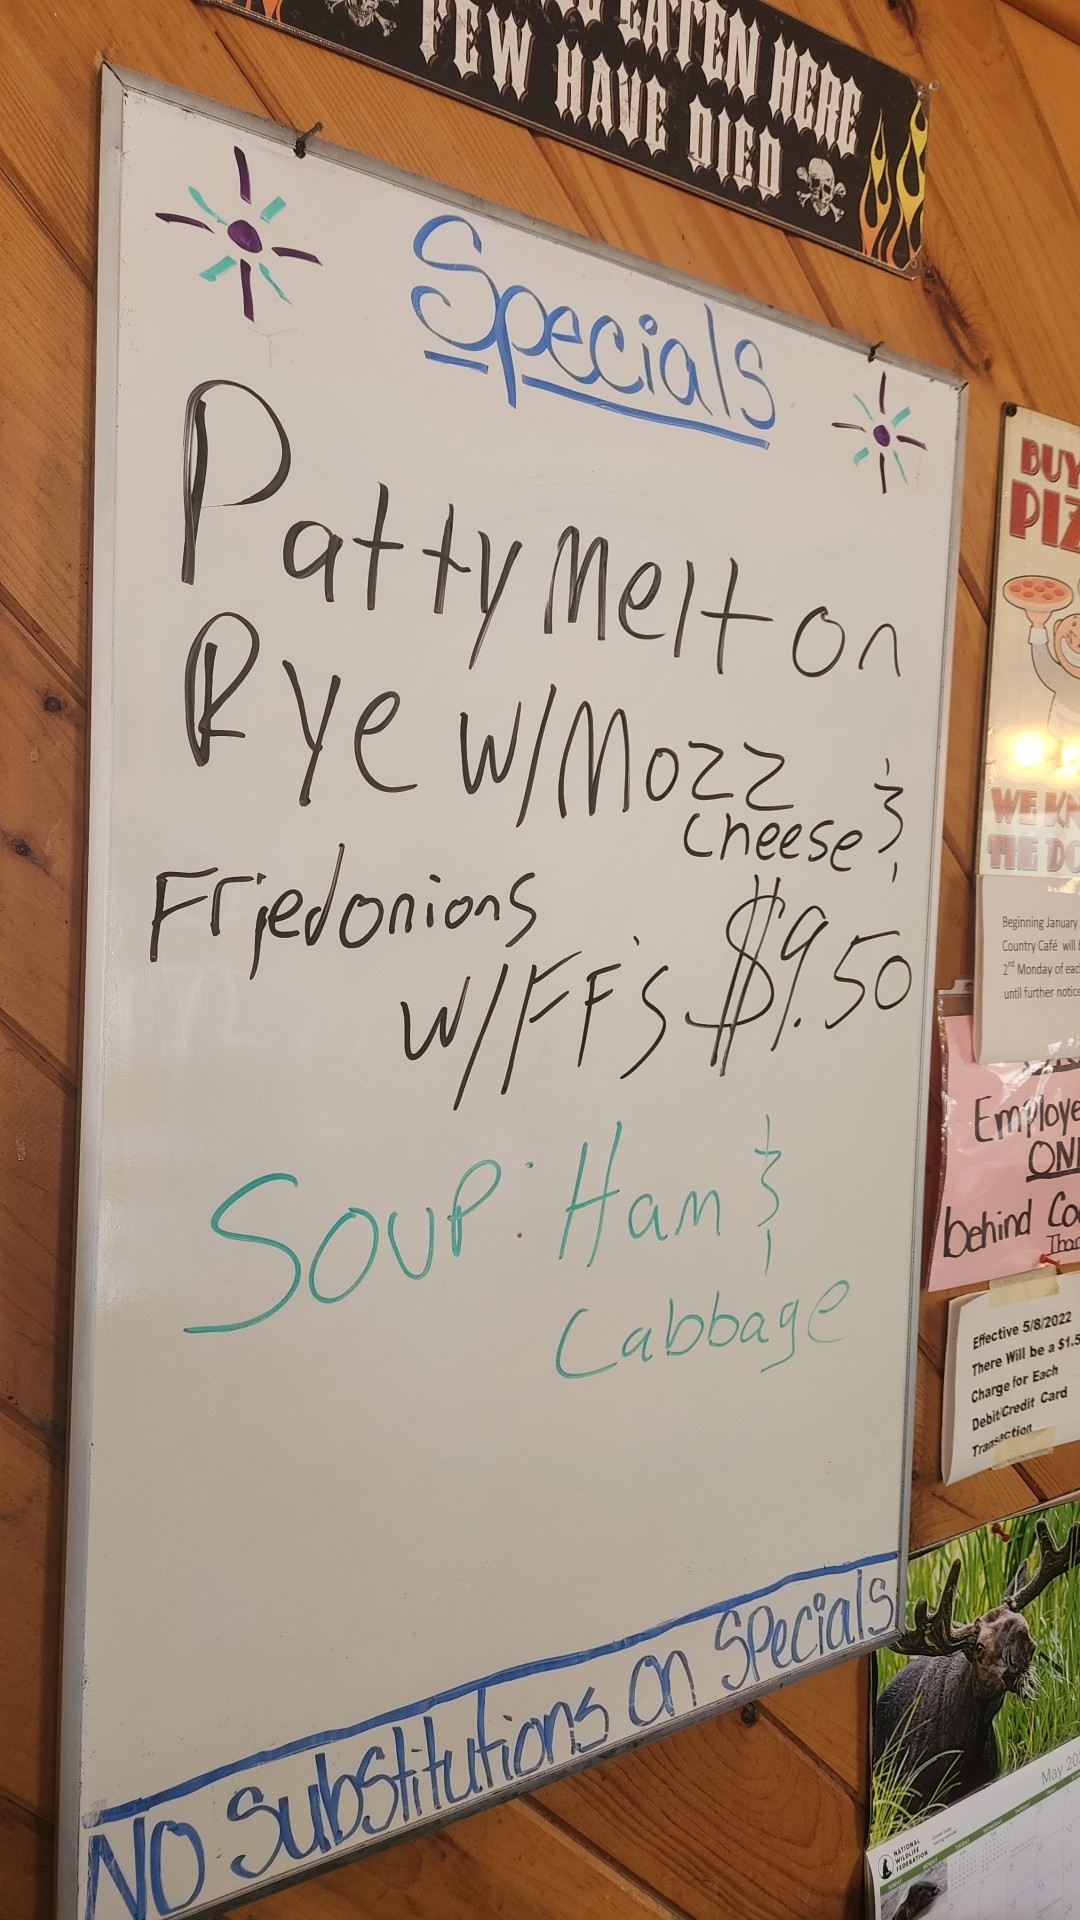 EATEN HERE
FEW HAVE DIED
Specials
Patty Melt on
Rye w/Mozz
Cheese &
Fried onions
w/FF's $9.50
Soup: Ham &
Cabbage
No Substitutions on Specials
BUY
WE
THE
Beginning January
Country Café will
2nd Monday of
until further notice
behind
Effective 5/8/2022
There Will be a
Charge for Each
Debit/Credit Card
Transaction
May
NATIONAL
WILDLIFE
FEDERATION